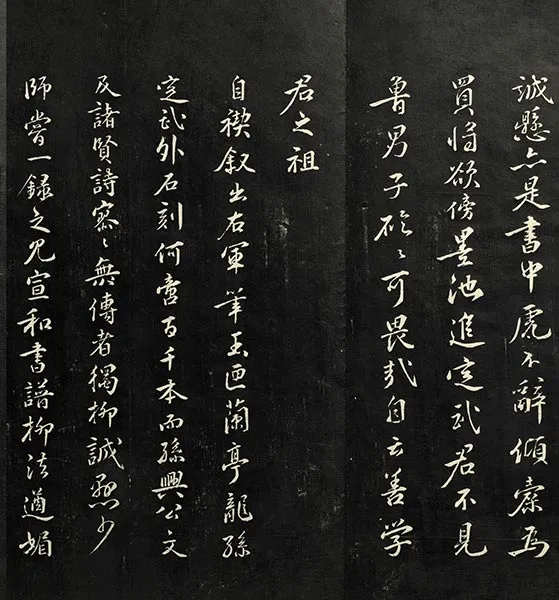 誠懸亦是書中虎不辭傾橐為
買將欲傍墨池進定武君不見
魯男子硜〻可畏我自云善学
君之祖
自禊叙出右軍筆玉匣蘭亭龍孫
定武外石刻何啻百千本而孫興公文
及諸賢詩寥〻無傳者獨柳誠懸少
師嘗一録之見宣和書譜柳法遒媚